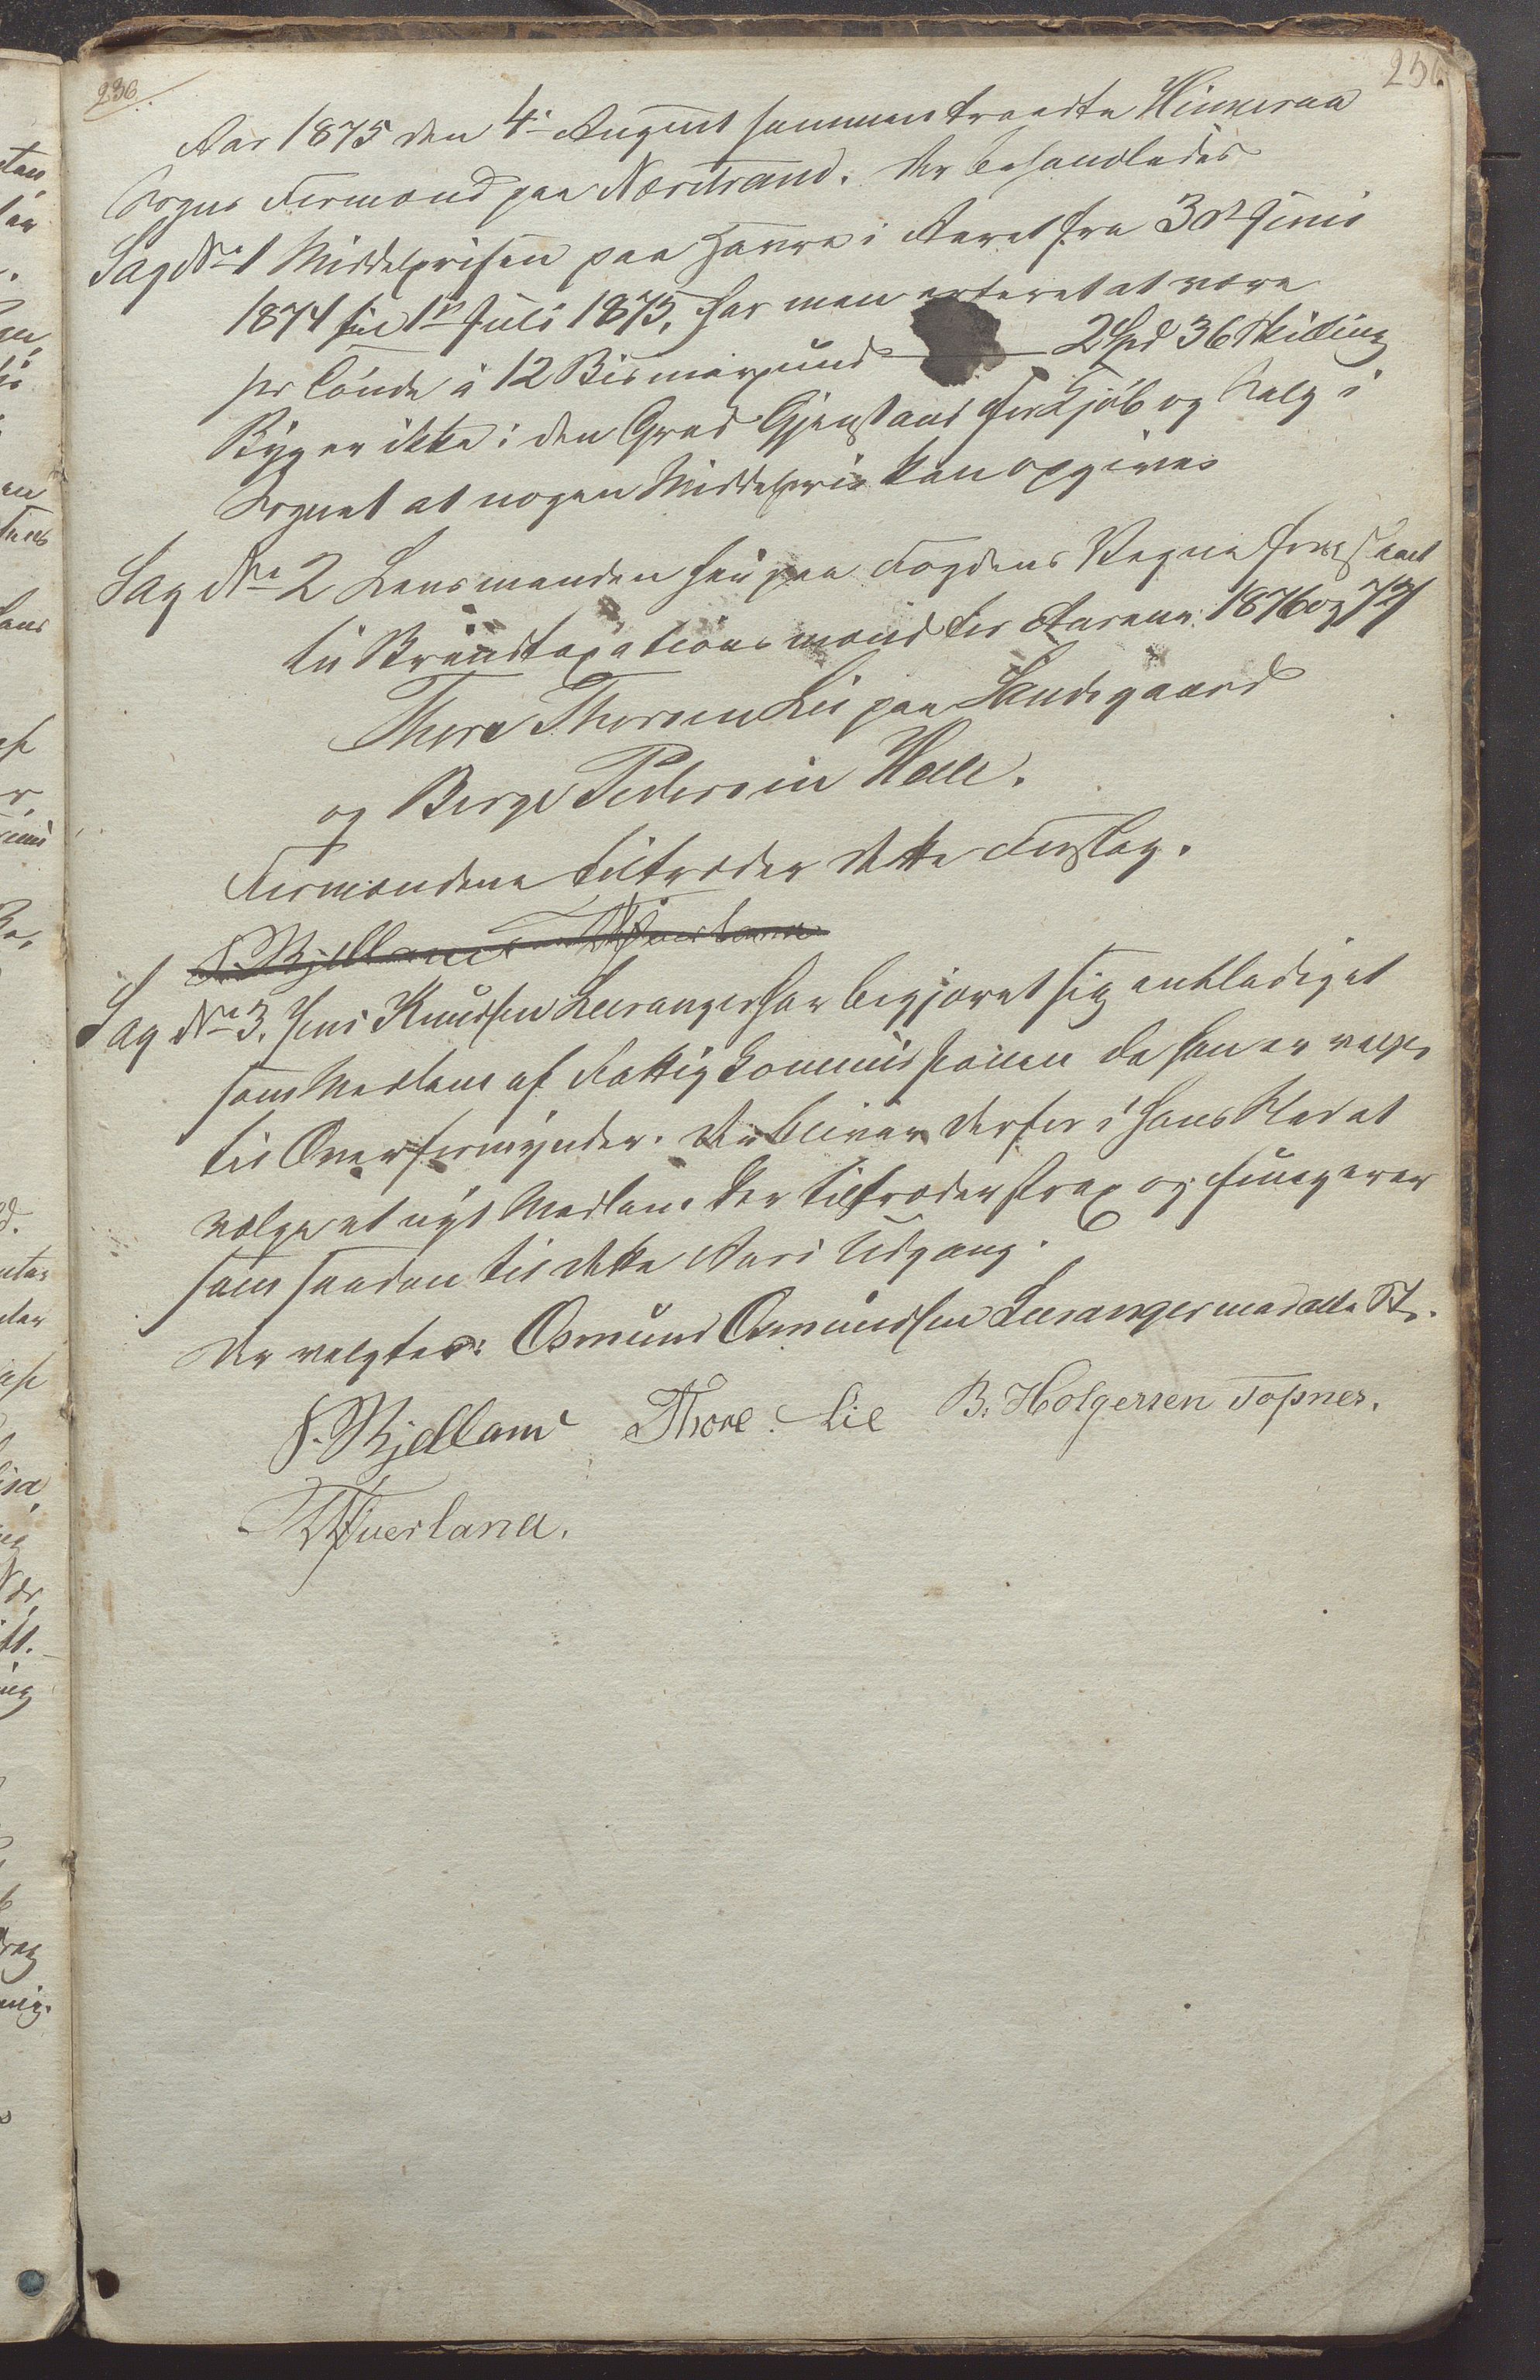 236. 236.
Aar 1875 den 4. August sammentraadte Hinneraa
Sogns Formænd paa Nærstrand. Der behandledes
Sag No 1 Middelprisen paa Havre i Aaret fra 30te Juni
1874 til 1ste Juli 1875, har man erfaret at være
pr Tønde à 12 Bismerpund 2 Spd 36 Skilling
Byg er ikke i den Grad Gjenstand for Kjøb og Salg i
Sognet at nogen Middelpris kan opgives
Sag No 2 Lensmanden har paa Fogdens Vegne foreslaaet
til Brandtaxationsmænd for Aarene 1876 og 77
Thore Thorsen Lie paa Sandsgaard
og Berge Pedersen Helle.
Formændene tiltræder dette Forslag.
S. Bjelland
Sag No 3. Jens Knudsen Leeranger har begjæret sig entlediget
som Medlem af Fattigkommissionen da han er valgt
til Overformynder. Der bliver derfor i hans Sted at
vælge et nyt Medlem der tiltræder strax og fungerer
som saadan til dette Aars Udgang.
Der valgtes: Osmund Osmundsen Leeranger med alle St.
S. Bjelland Thore Lie B. Holgersen Topnes.